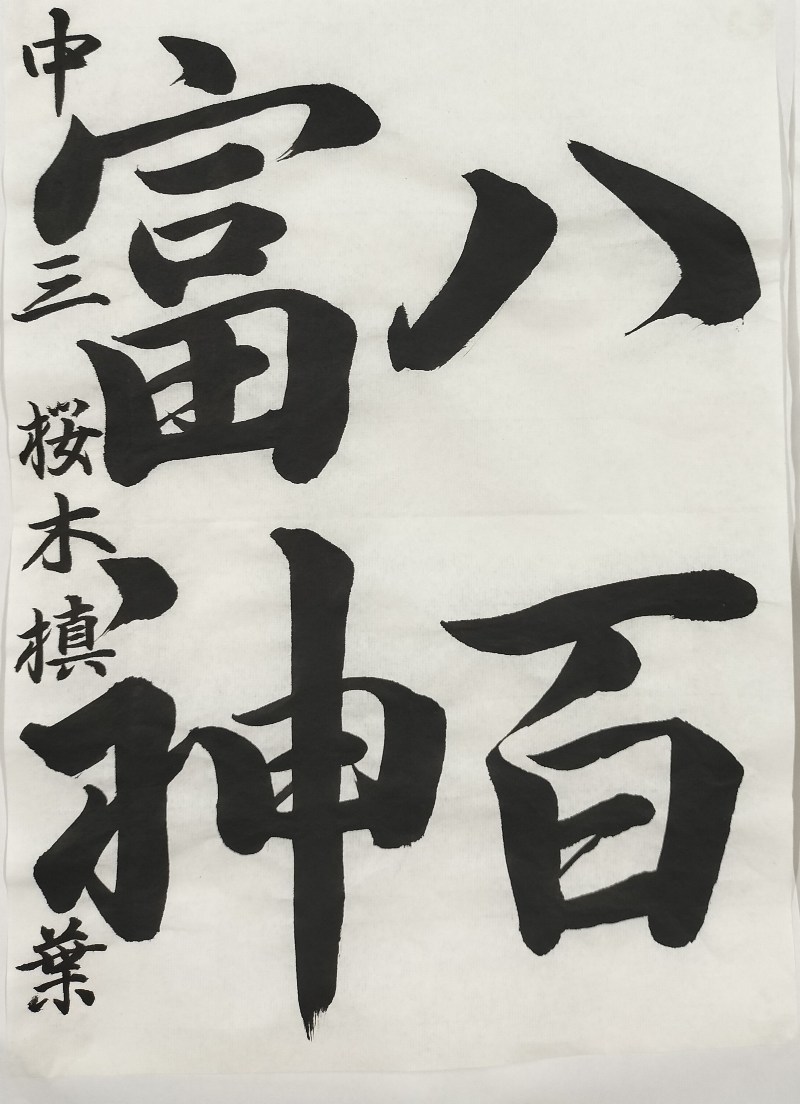 八百
富神
中三 桜木槙葉